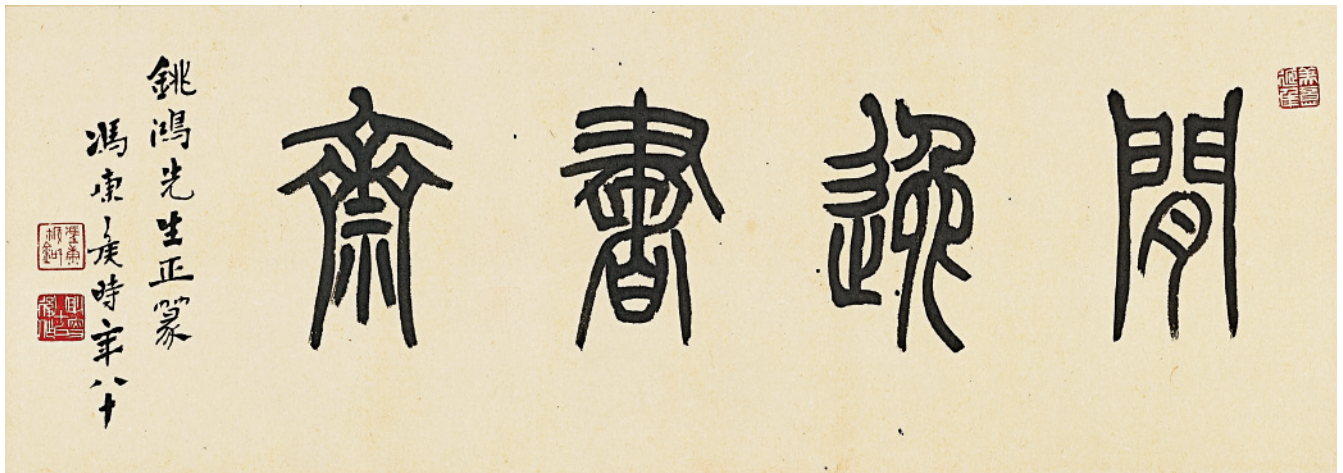 閒逸書齋
銚鴻先生正篆
馮康矦時年八十